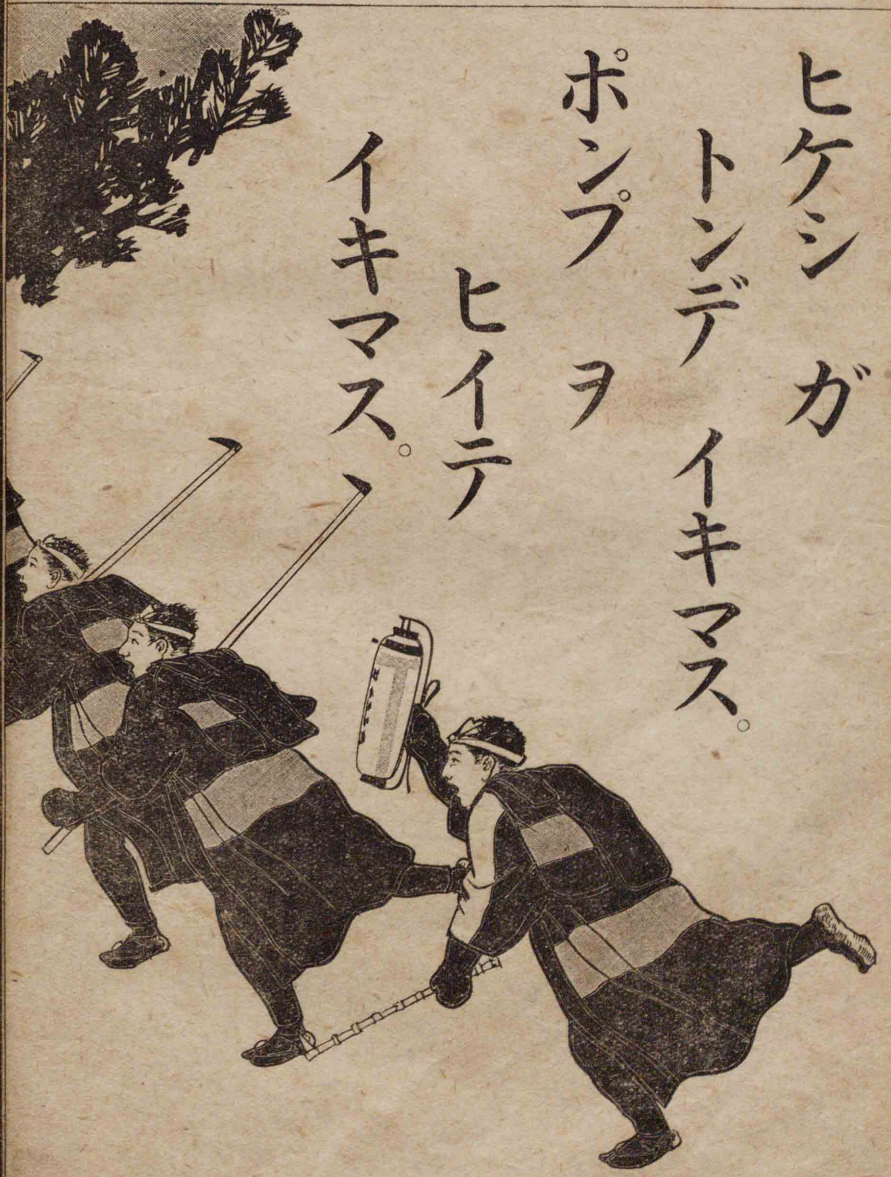 ヒケシ ガ
トンデ イキマス。
ポンプ ヲ
ヒイテ
イキマス。